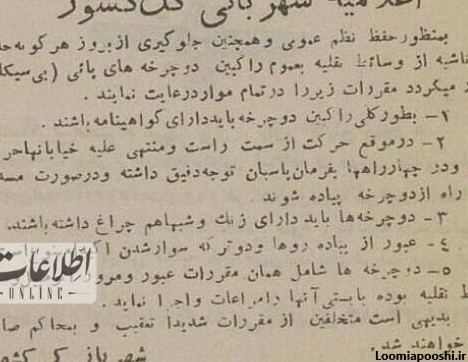 اعلامیه شهربانی کل کشور
بمنظور حفظ نظم عمومی و همچنین جلوگیری از بروز هر گونه
ناشیه از وسائط نقلیه بعموم راکبین دوچرخه های پائی (بی سیکل
میگردد مقررات زیر را در تمام موارد رعایت نمایند .
۱ــ بطور کلی راکبین دوچرخه باید دارای گواهینامه باشند .
۲ــ در موقع حرکت از سمت راست و منتهی علیه خیابانها
و در چهار راهها بفرمان پاسبان توجه دقیق داشته و در صورت
راه از دوچرخه پیاده شوند .
۳ــ دوچرخه ها باید دارای زنگ و شبها هم چراغ داشته باشند.
٤ــ عبور از پیاده روها و دو ترکه سوار شدن
۵ــ دوچرخه ها شامل همان مقررات عبور و مرور
نقلیه بوده بایستی آنها را مراعات و اجرا نماید .
بدیهی است متخلفین از مقررات شدیدا تعقیب و بمحاکم
خواهند شد.
شهربانی کل کشور
اطلاعات
ONLINE
Loomiapooshi.ir